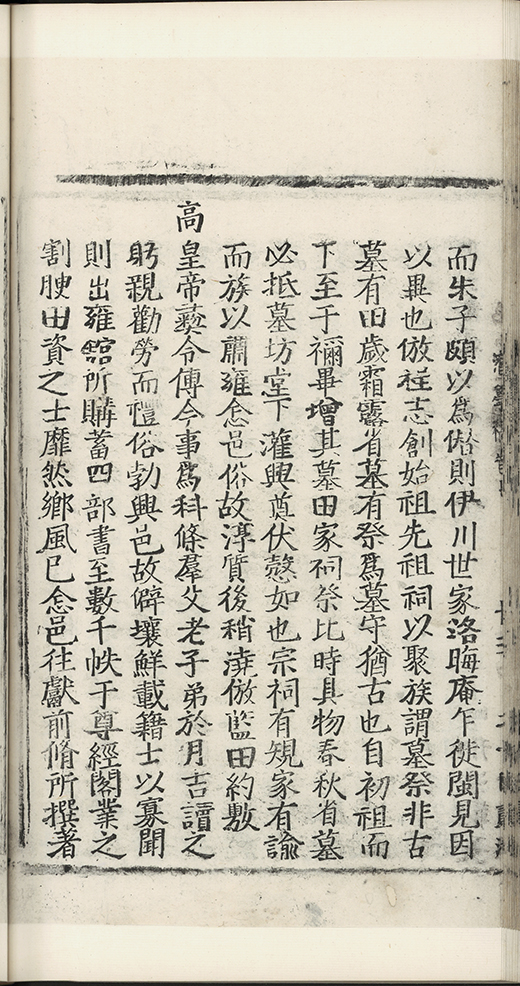 而朱子頗以為僭則伊川世家洛晦庵乍徙閩見因
以異也倣程志創始祖先祖祠以聚族謂墓祭非古
墓有田歲霜露省墓有祭為墓守猶古也自初祖而
下至于禰畢增其墓田家祠祭比時具物春秋省墓
必抵墓坊堂下灌興奠伏愨如也宗祠有規家有諭
而族以肅雍念邑俗故淳質後稍澆倣藍田約敷
高皇帝彞令傅今事為科條羣父老子弟於月吉讀之
躬親勸勞而禮俗勃興邑故僻壤鮮載籍士以寡聞
則出雍舘所購蓄四部書至數千帙于尊經閣業之
割腴田資之士靡然鄉風已念邑往獻前脩所撰著